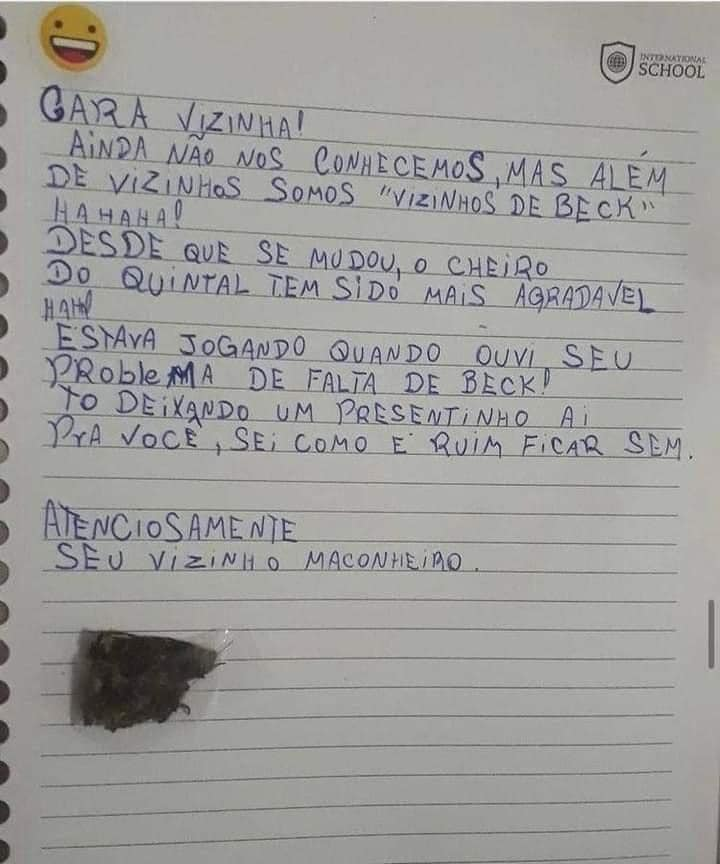 INTERNATIONAL
SCHOOL
CARA VIZINHA!
AINDA NÃO NOS CONHECEMOS, MAS ALÉM
DE VIZINHOS SOMOS "VIZINHOS DE BECK"
HAHAHA!
DESDE QUE SE MUDOU, O CHEIRO
DO QUINTAL TEM SIDO MAIS AGRADAVEL
HAHA
ESTAVA JOGANDO QUANDO OUVI SEU
PROBleMA DE FALTA DE BECK!
TO DEIXANDO UM PRESENTINHO AI
PrA VOCÊ, SEI COMO E RUIM FICAR SEM.
ATENCIOSAMENTE
SEU VIZINHO MACONHEIRO.